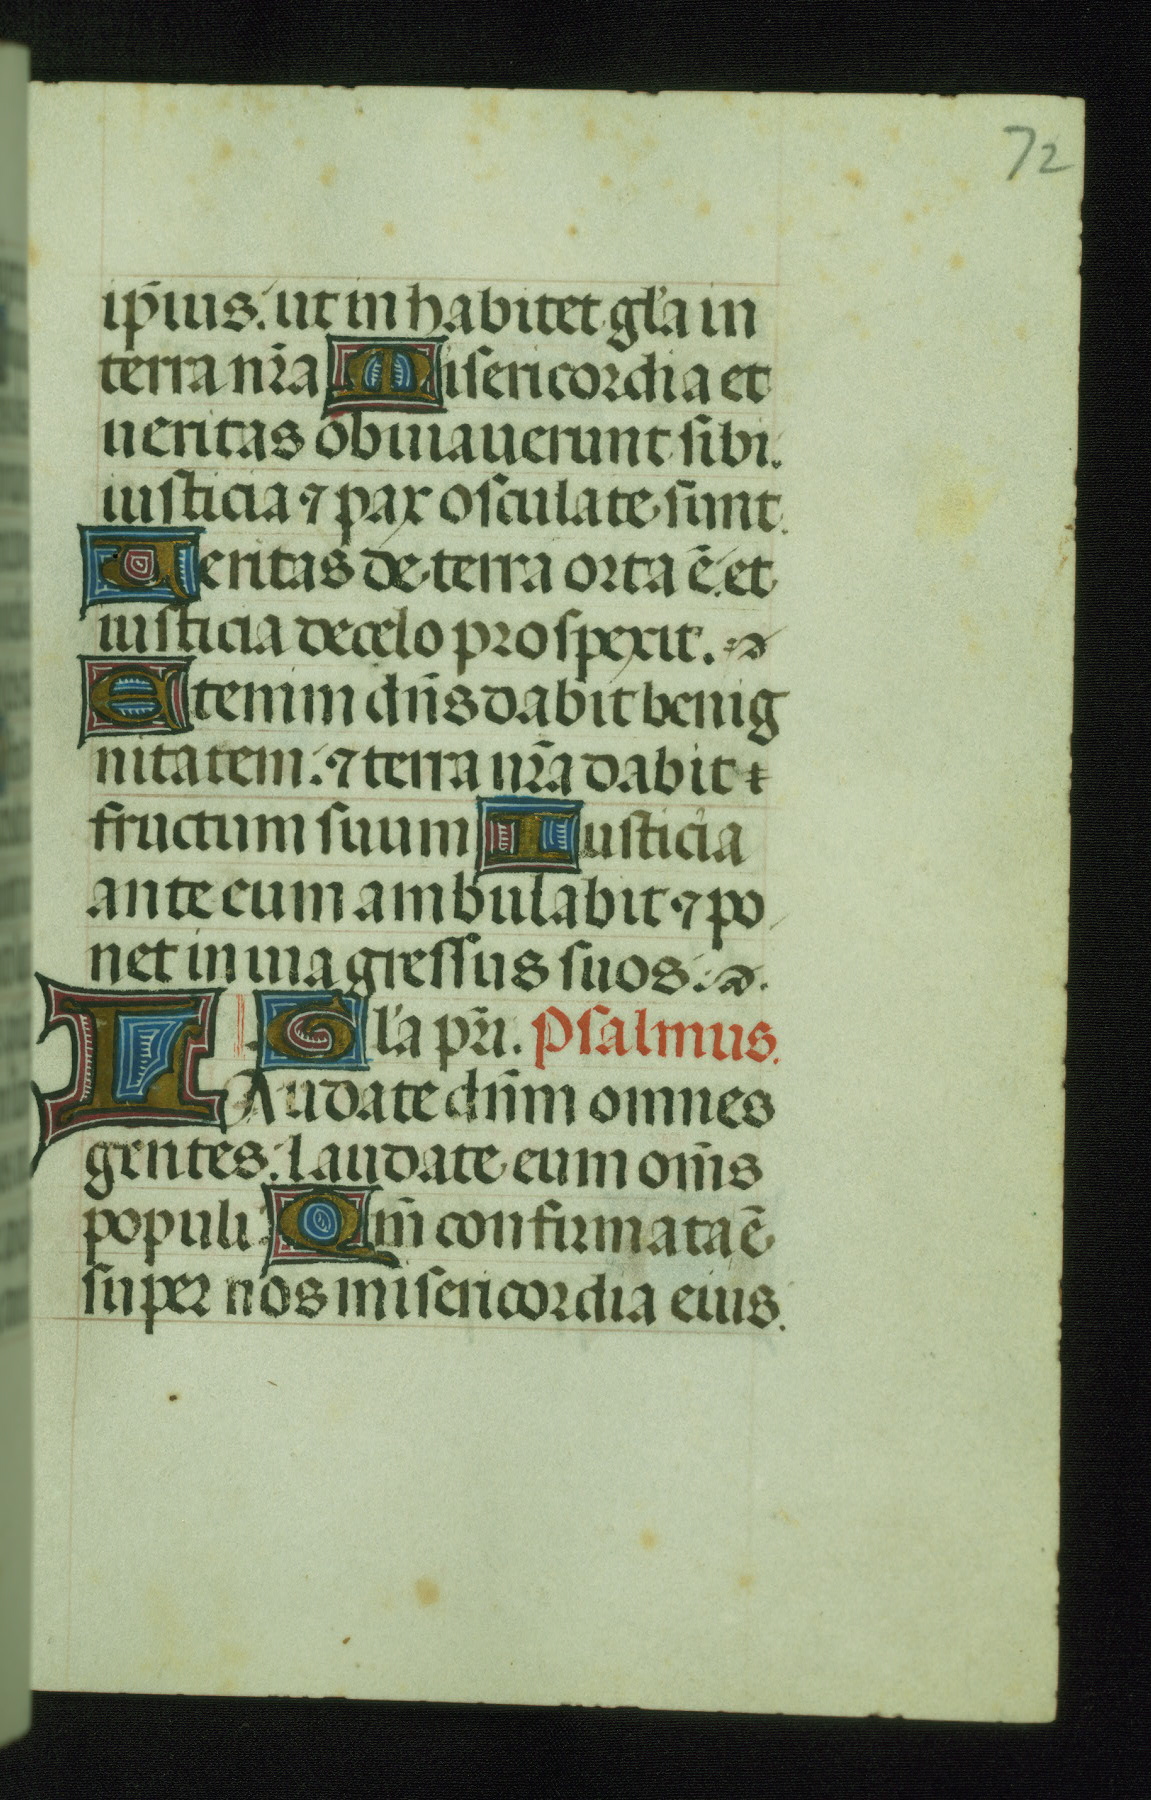 72
ip̄ius. ut inhabitet gl̄a in
terra nr̄a Misericordia et
ueritas obuiauerunt sibi.
iusticia ⁊ pax osculate sunt.
Ueritas de terra orta ē. et
iusticia de celo prospexit.
Etenim dn̄s dabit benig
nitatem. ⁊ terra nr̄a dabit
fructum suum Iusticia
ante eum ambulabit ⁊ po
net in uia gressus suos.
Gl̄a pr̄i. Psalmus.
LAudate dn̄m omnes
gentes. laudate eum om̄s
populi. Qm̄ confirmata ē
super nos misericordia eius.